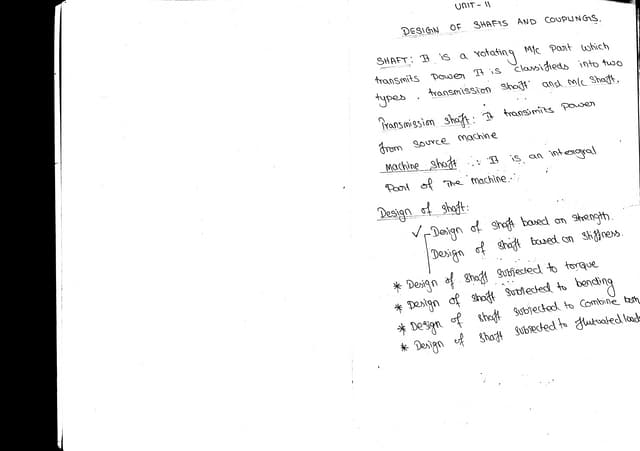 UNIT - II
DESIGN OF SHAFTS AND COUPLINGS.
SHAFT: It is a rotating M/c Part which
transmits Power It is classifieds into two
types. transmission shaft and M/c Shaft.
Transmission shaft: It transimits power
from source machine
Machine shaft :: It is an intergral
Part of The machine.
Design of shaft:
✓ Design of shaft based on strength.
Design of shaft based on stiffness.
* Design of shaft subjected to torque
* Design of shaft subjected to bending
* Design of shaft subjected to combine
* Design of shaft subjected to fluctuated load